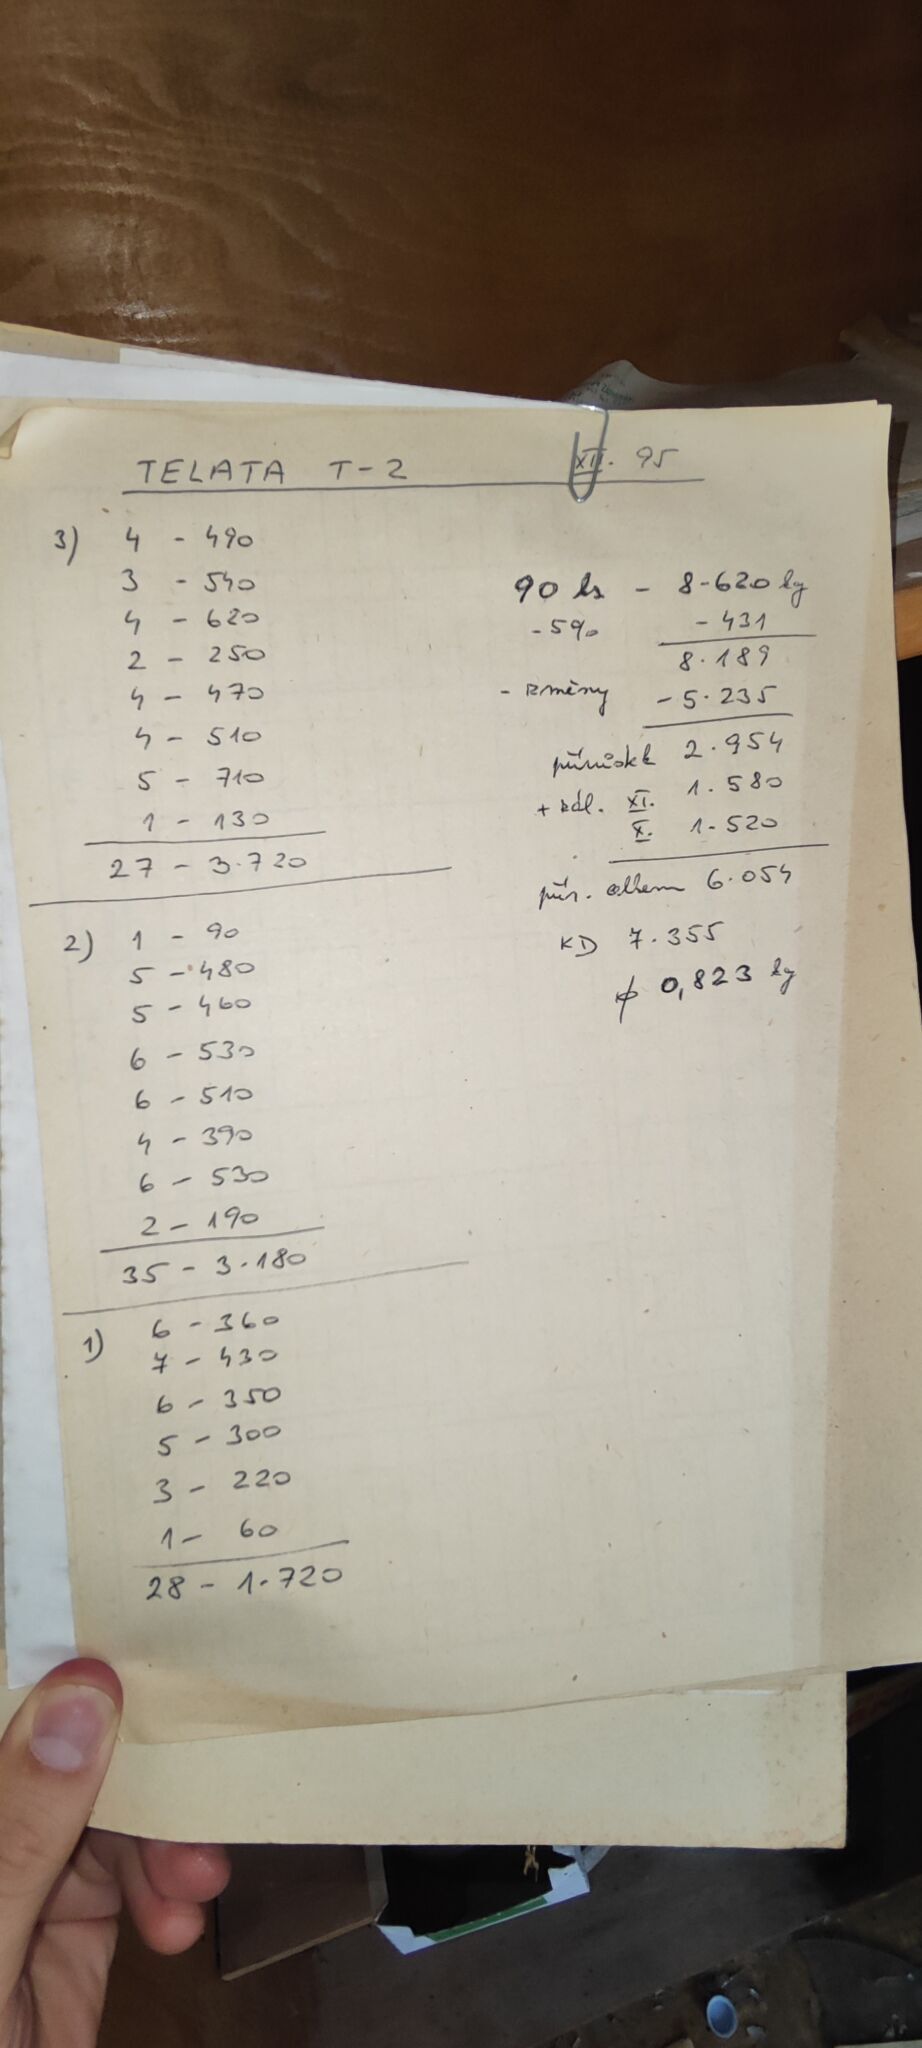 TELATA T-2 XII. 95
3) 4 - 490
3 - 540
4 - 620
2 - 250
4 - 470
4 - 510
5 - 710
1 - 130
27 - 3.720
2) 1 - 90
5 - 480
5 - 460
6 - 530
6 - 510
4 - 390
6 - 530
2 - 190
35 - 3.180
1) 6 - 360
7 - 430
6 - 350
5 - 300
3 - 220
1 - 60
28 - 1.720
90 ks - 8.620 kg
- 5% - 431
8.189
- změny - 5.235
přírůstek 2.954
+ zál. XI. 1.580
X. 1.520
přír. celkem 6.054
KD 7.355
ϕ 0,823 kg